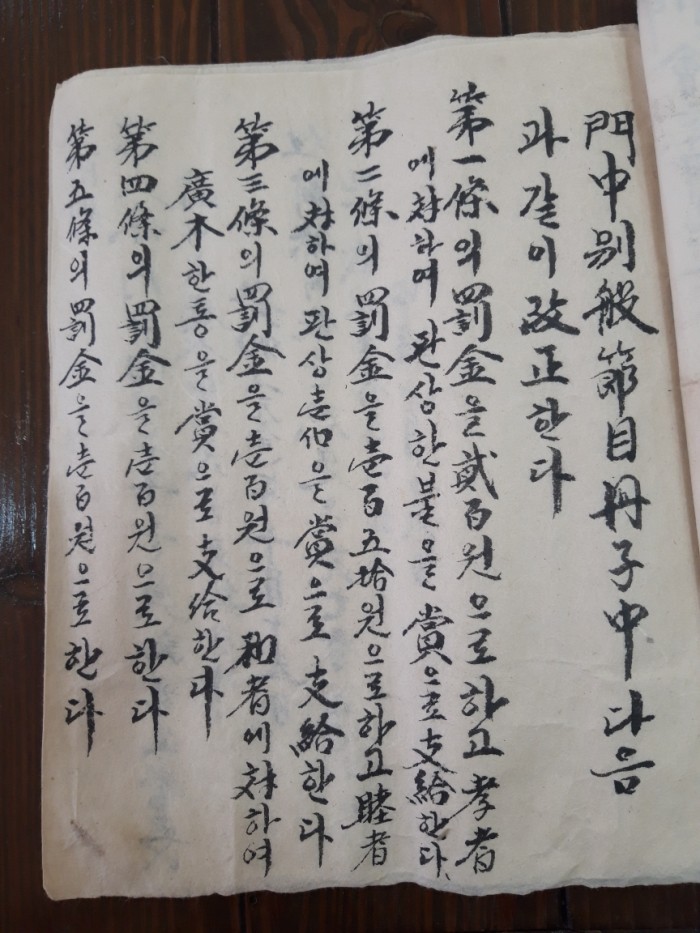 門中別般節目冊子中 다음
과 같이 改正한다
第一條의 罰金을 貳百원으로 하고 孝者
에 対하여 판상한불을 賞으로 支給한다.
第二條의 罰金을 壹百五拾원으로 하고 睦者
에 対하여 판상 을 賞으로 支給한다
第三條의 罰金을 壱百원으로 和者에 対하여
廣木한통을 賞으로 支給한다
第四條의 罰金을 壱百원으로 한다
第五條의 罰金을 壱百원으로 한다